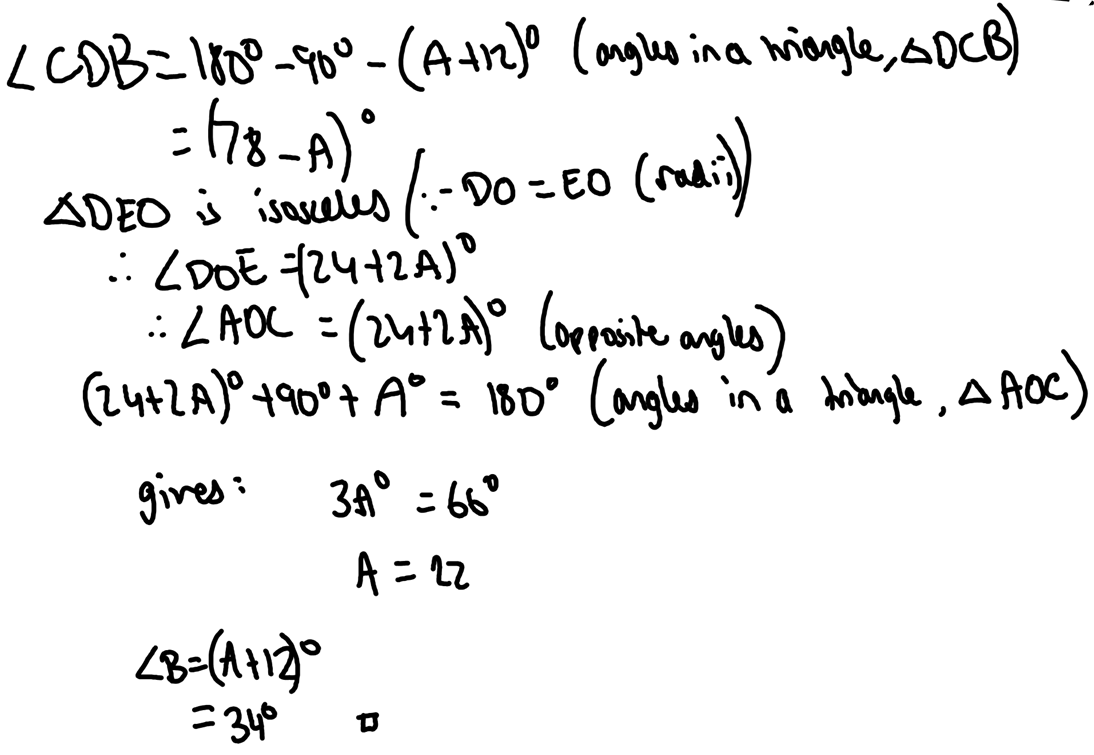 ∠CDB = 180° - 90° - (A+12)° (angles in a triangle, △DCB)
= (78 - A)°
△DEO is isosceles (∵ DO = EO (radii))
∴ ∠DOE = (24+2A)°
∴ ∠AOC = (24+2A)° (opposite angles)
(24+2A)° + 90° + A° = 180° (angles in a triangle, △AOC)
gives: 3A° = 66°
A = 22
∠B = (A+12)°
= 34° □